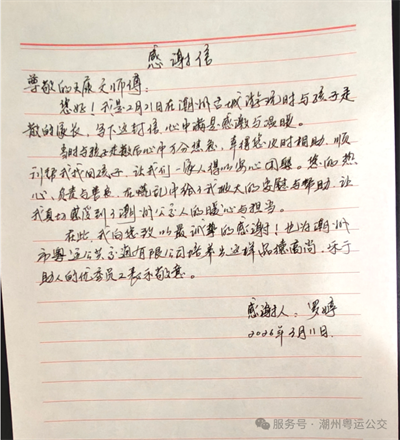 感谢信
尊敬的关师傅：
您好！我是2月21日在潮州古城游玩时与孩子走
散的家长，写下这封信，心中满是感激与温暖。
当时与孩子走散后心中万分焦急，幸得您及时相助，顺
利帮我找回孩子，让我们一家人得以安心团聚。您的热
心、负责与善良，在慌乱中给了我极大的安慰与帮助，让
我真切感受到了潮州公交人的暖心与担当。
在此，我向您致以最诚挚的感谢！也为潮州
市粤运公共交通有限公司培养出这样品德高尚、乐于
助人的优秀员工表示敬意。
感谢人：罗婷
2026年3月11日
服务号·潮州粤运公交